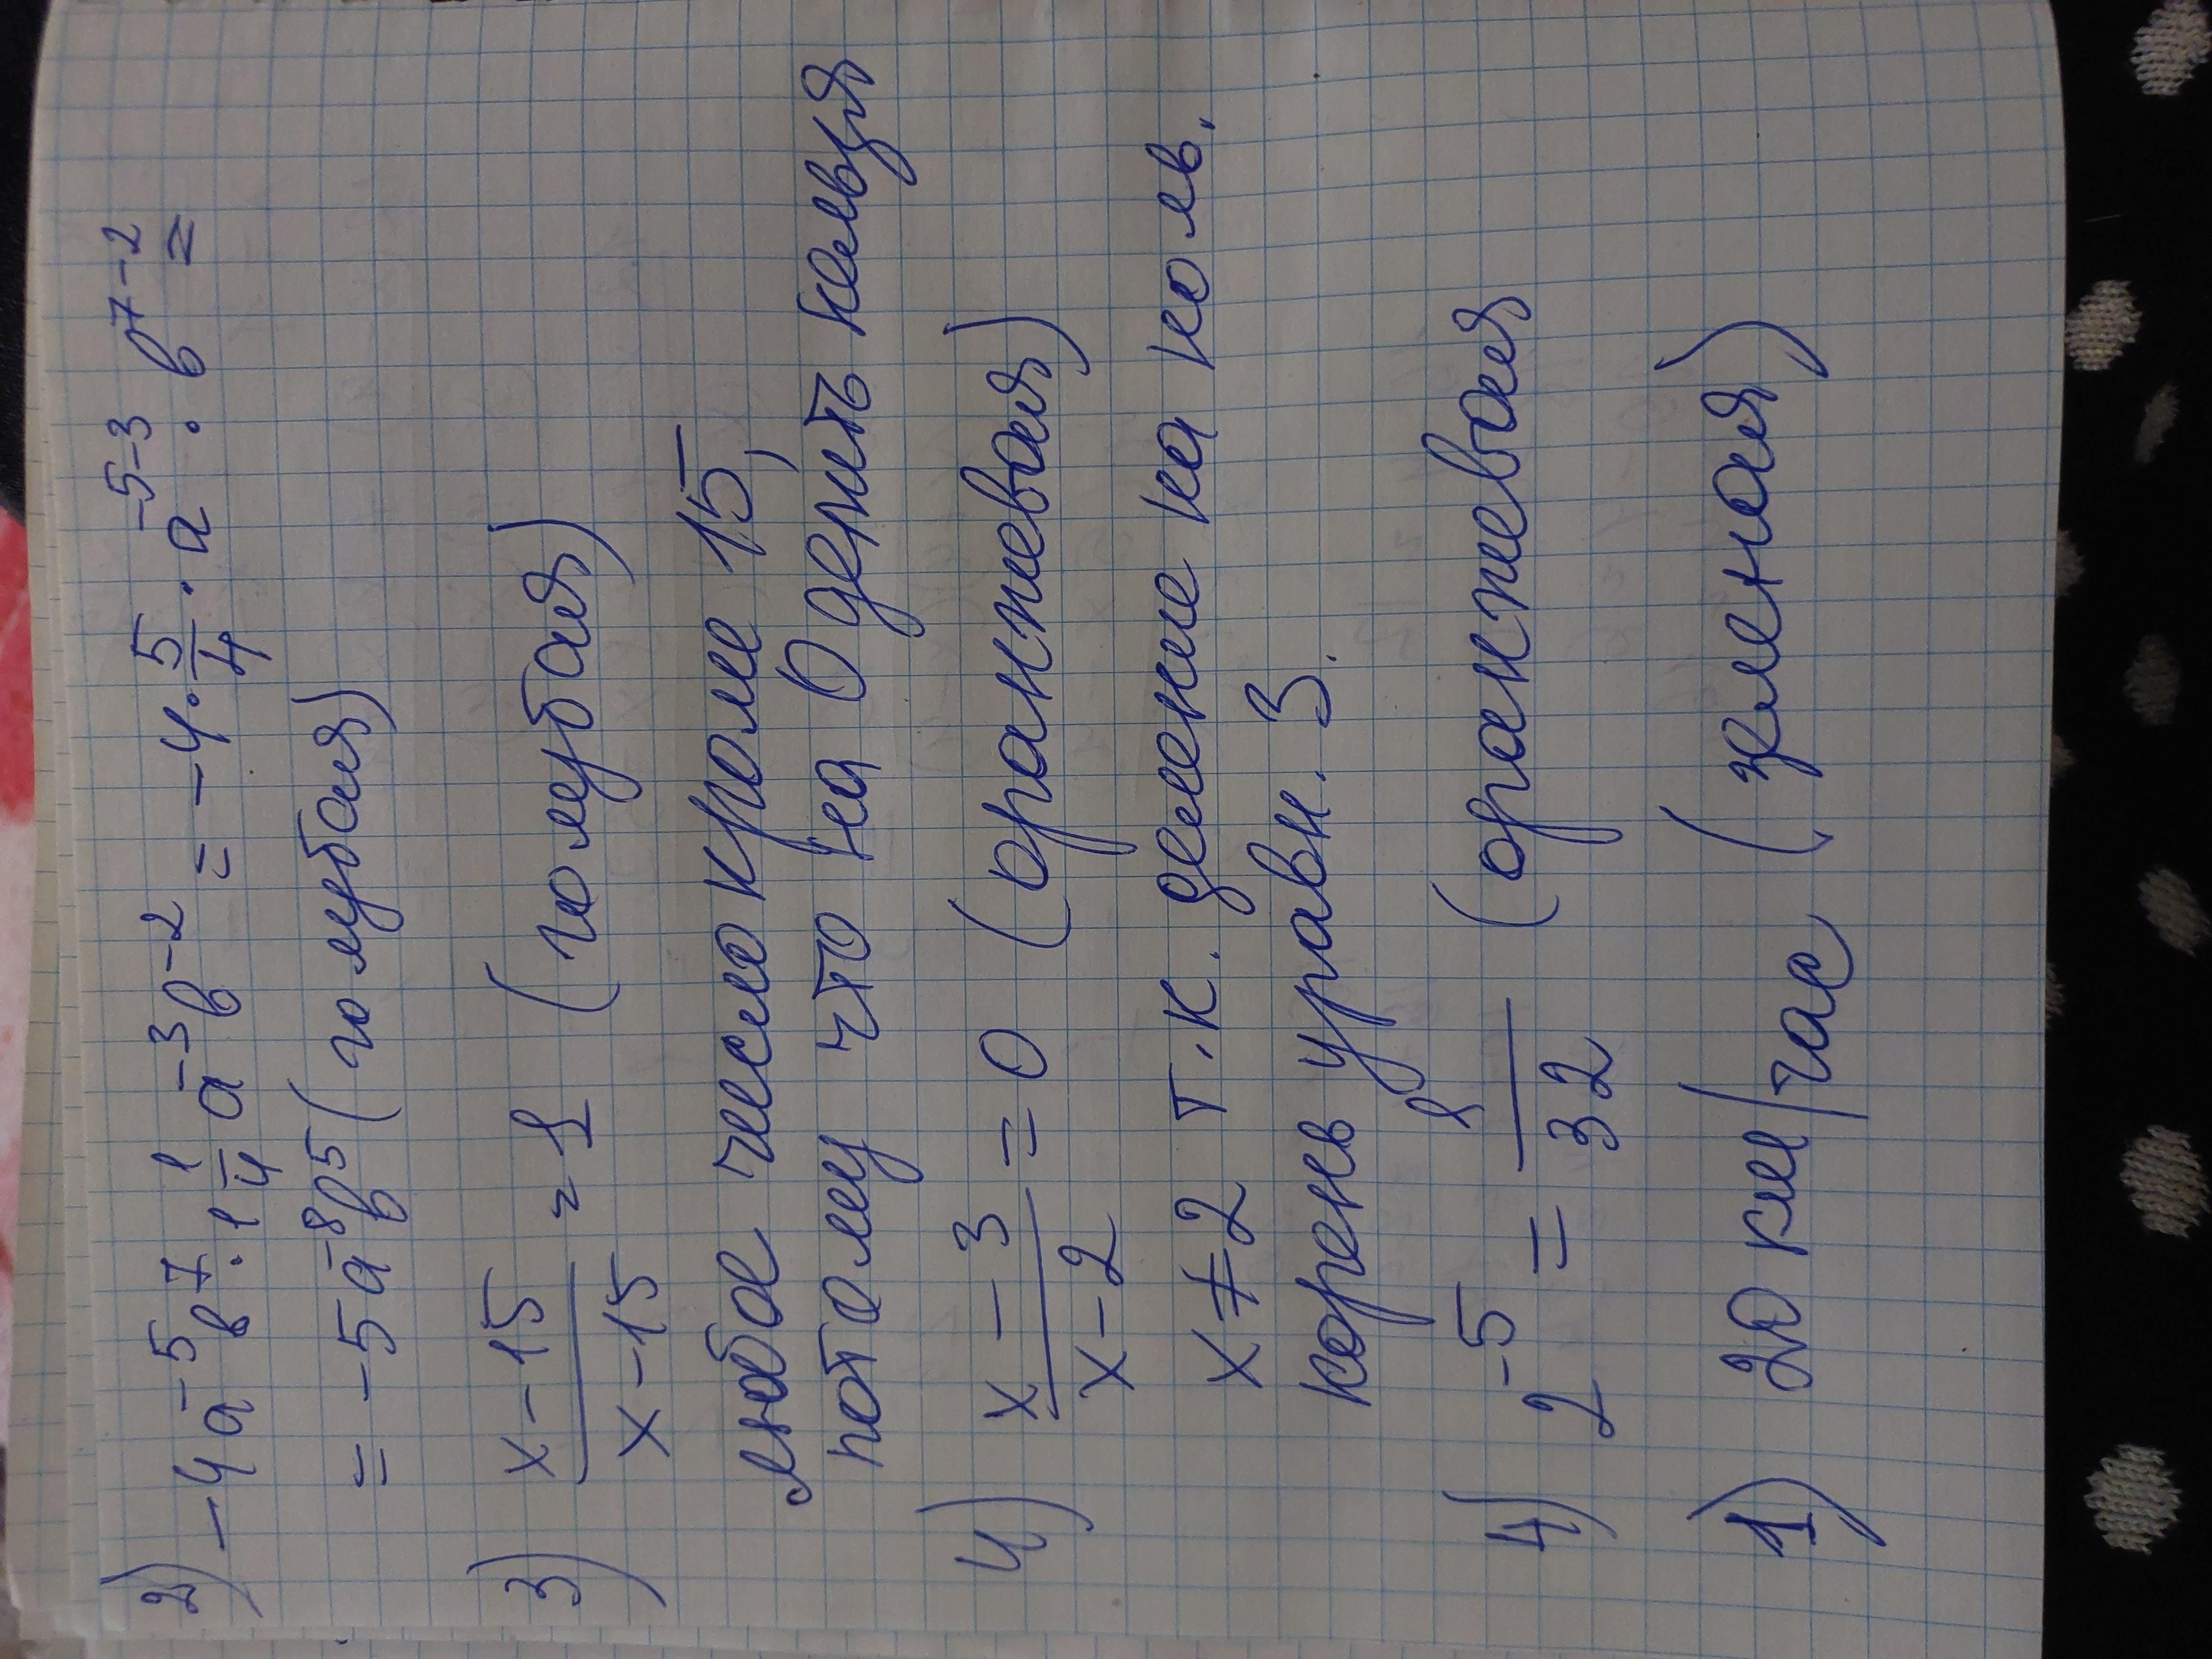 2) -4a⁻⁵в⁷·1 1/4 a⁻³в⁻² = -4·5/4·a⁻⁵⁻³·в⁷⁻² =
= -5a⁻⁸в⁵ (голубая)
3) x-15/x-15 = 1 (голубая)
любое число кроме 15,
потому что на 0 делить нельзя
4) x-3/x-2 = 0 (оранжевая)
x≠2 т.к. деление на ноль.
корень уравн. 3.
4) 2⁻⁵ = 1/32 (оранжевая
1) 20 км/час (зеленая)